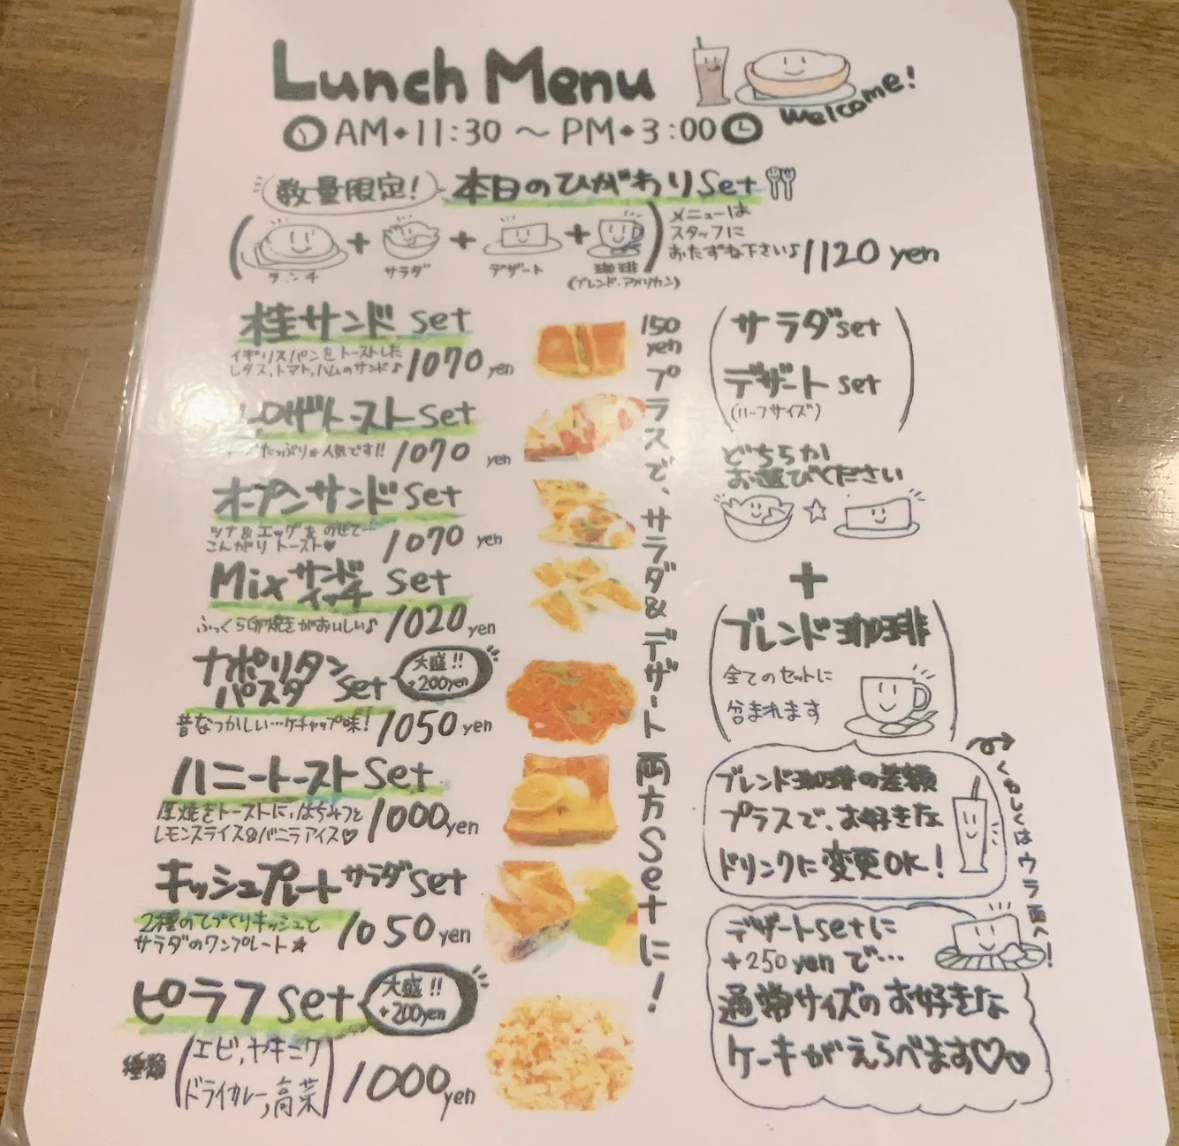 Lunch Menu
welcome!
AM・11:30 〜 PM・3:00
数量限定! 本日のひがわりSet
ランチ + サラダ + デザート + 珈琲
(ブレンド・アメリカン)
メニューは
スタッフに
おたずね下さい♪ 1120 yen
桂サンド set
イギリスパンをトーストした
レタス,トマト,ハムのサンド♪ 1070 yen
トースト set
たっぷり☆人気です!! 1070 yen
オープンサンド set
ツナ&エッグをのせて…
こんがりトースト♥ 1070 yen
Mixサンドイッチ set
ふっくら卵焼きがおいしい♪ 1020 yen
ナポリタン
パスタ set
大盛!!
+200yen
昔なつかしい…ケチャップ味! 1050 yen
ハニートースト set
厚焼きトーストに,はちみつと
レモンスライス&バニラアイス♡ 1000 yen
キッシュプレート サラダ set
2種のてづくりキッシュと
サラダのワンプレート★ 1050 yen
ピラフ set
大盛!!
+200yen
種類 (エビ,ヤキニク
ドライカレー,高菜) 1000 yen
150
yen
プラスで、サラダ&デザート両方Setに!
サラダ set
デザート set
(ハーフサイズ)
どちらか
お選びください
+
ブレンド珈琲
全てのセットに
含まれます
ブレンド珈琲の差額
プラスで、お好きな
ドリンクに変更OK!
くわしくはウラ面へ!
デザートsetに
+250 yen で…
通常サイズのお好きな
ケーキがえらべます♡♡